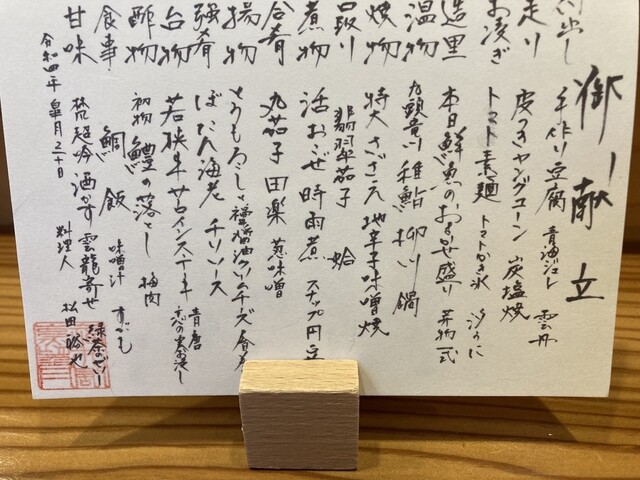 御献立
付出し 手作り豆腐 青海ジュレ 雲丹
走り 皮つきヤングコーン 炭塩焼
お凌ぎ トマト素麺 トマトかき氷
造里 本日鮮魚のおまかせ盛り 芽物一式
温物 九頭竜川稚鮎柳川鍋
焼物 特大さざえ 地辛子味噌焼
口取り 翡翠茄子 蛤
煮物 活おこぜ時雨煮 スナップ円豆
合肴 丸茄子田楽 葱味噌
揚物 とうもろこし
強肴 ぼたん海老 チリソース 青唐
台物 若狭牛サロインステーキ
酢物 初物 鱧の落とし 梅肉
食事 鯛飯 味噌汁
甘味 梵超吟酒かす雲龍寄せ 緑茶のゼリー
令和四年 皐月三十日 料理人 松田